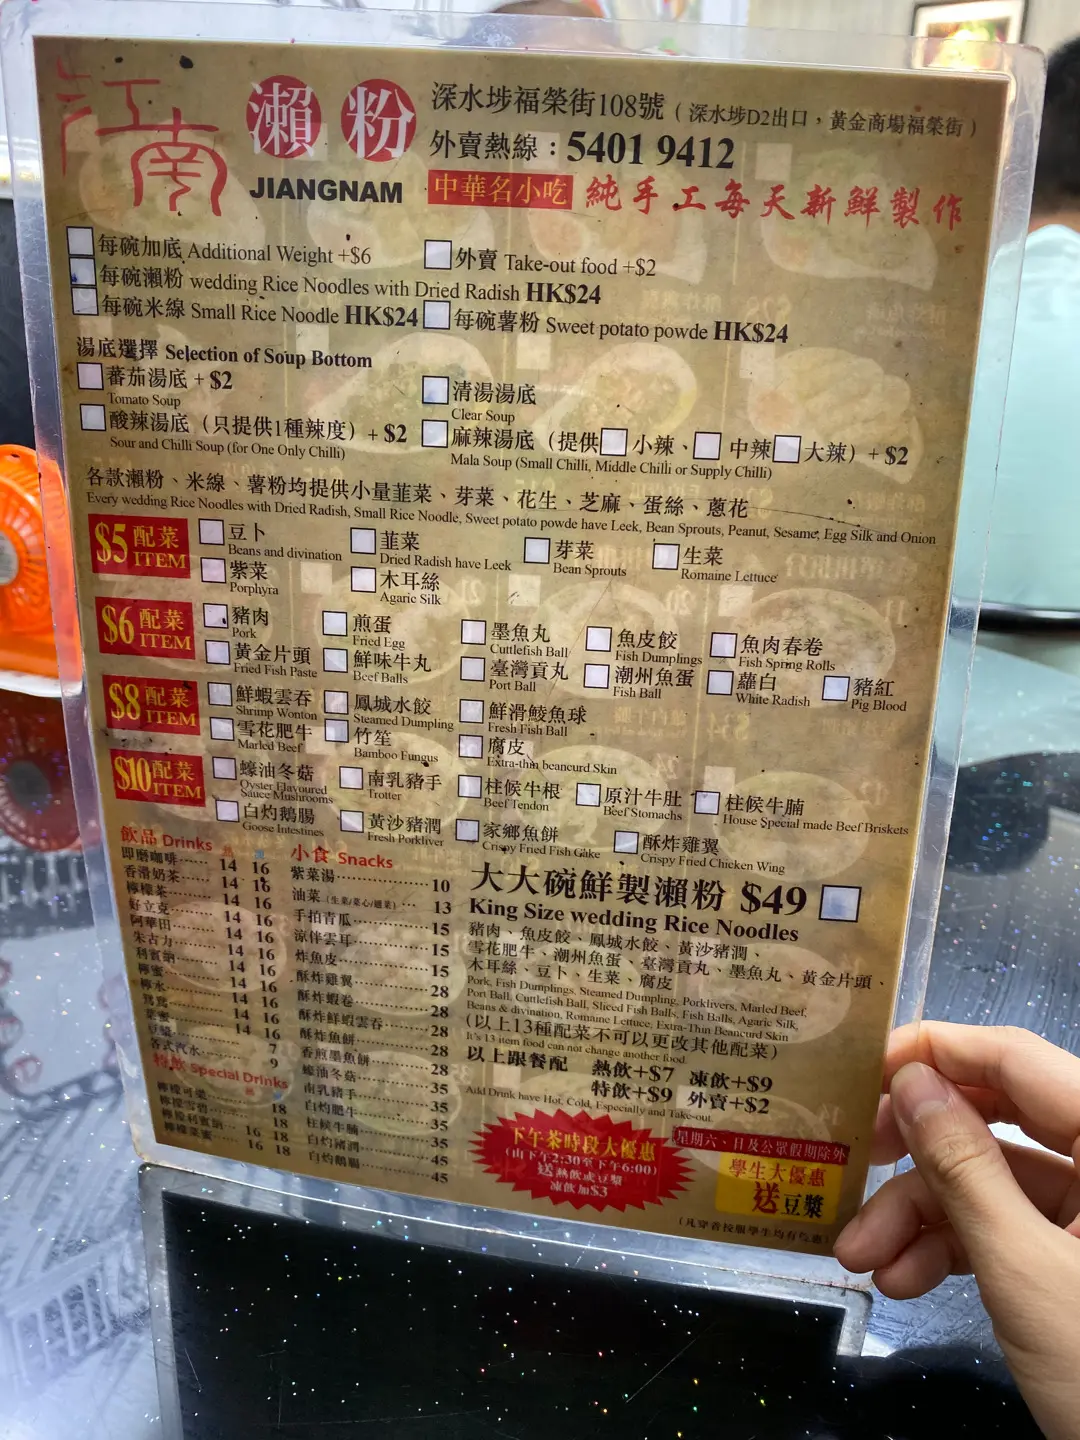 江南
瀨粉
JIANGNAM
深水埗福榮街108號（深水埗D2出口，黃金商場福榮街）
外賣熱線：5401 9412
中華名小吃 純手工每天新鮮製作
每碗加底 Additional Weight +$6
外賣 Take-out food +$2
每碗瀨粉 wedding Rice Noodles with Dried Radish HK$24
每碗米線 Small Rice Noodle HK$24
每碗薯粉 Sweet potato powde HK$24
湯底選擇 Selection of Soup Bottom
蕃茄湯底 + $2
Tomato Soup
清湯湯底
Clear Soup
酸辣湯底（只提供1種辣度）+ $2
Sour and Chilli Soup (for One Only Chilli)
麻辣湯底（提供 小辣、 中辣 大辣）+ $2
Mala Soup (Small Chilli, Middle Chilli or Supply Chilli)
各款瀨粉、米線、薯粉均提供小量韮菜、芽菜、花生、芝麻、蛋絲、蔥花
Every wedding Rice Noodles with Dried Radish, Small Rice Noodle, Sweet potato powde have Leek, Bean Sprouts, Peanut, Sesame, Egg Silk and Onion
$5 配菜 ITEM
豆卜
Beans and divination
韮菜
Dried Radish have Leek
芽菜
Bean Sprouts
生菜
Romaine Lettuce
紫菜
Porphyra
木耳絲
Agaric Silk
$6 配菜 ITEM
豬肉
Pork
煎蛋
Fried Egg
墨魚丸
Cuttlefish Ball
魚皮餃
Fish Dumplings
魚肉春卷
Fish Spring Rolls
黃金片頭
Fried Fish Paste
鮮味牛丸
Beef Balls
臺灣貢丸
Port Ball
潮州魚蛋
Fish Ball
蘿白
White Radish
豬紅
Pig Blood
$8 配菜 ITEM
鮮蝦雲吞
Shrimp Wonton
鳳城水餃
Steamed Dumpling
鮮滑鯪魚球
Fresh Fish Ball
雪花肥牛
Marled Beef
竹笙
Bamboo Fungus
腐皮
Extra-thin beancurd Skin
$10 配菜 ITEM
蠔油冬菇
Oyster Flavoured
Sauce Mushrooms
南乳豬手
Trotter
柱候牛根
Beef Tendon
原汁牛肚
Beef Stomachs
柱候牛腩
House Special made Beef Briskets
白灼鵝腸
Goose Intestines
黃沙豬潤
Fresh Porkliver
家鄉魚餅
Crispy Fried Fish Cake
酥炸雞翼
Crispy Fried Chicken Wing
飲品 Drinks 熱 凍
即磨咖啡 14 16
香滑奶茶 14 16
檸檬茶 14 16
好立克 14 16
阿華田 14 16
朱古力 14 16
利賓納 14 16
檸蜜 14 16
檸水 14 16
鴛鴦 14 16
菜蜜 14 16
豆漿 7
各式汽水 9
特飲 special Drinks
檸檬可樂 18
檸檬雪碧 18
檸檬利賓納 16 18
檸檬菜蜜 16 18
小食 Snacks
紫菜湯 10
油菜（生菜/菜心/韮菜） 13
手拍青瓜 15
涼伴雲耳 15
炸魚皮 15
酥炸雞翼 28
酥炸蝦卷 28
酥炸鮮蝦雲吞 28
酥炸魚餅 28
香煎墨魚餅 28
蠔油冬菇 35
南乳豬手 35
白灼肥牛 35
柱候牛腩 35
白灼豬潤 45
白灼鵝腸 45
大大碗鮮製瀨粉 $49
King Size wedding Rice Noodles
豬肉、魚皮餃、鳳城水餃、黃沙豬潤、
雪花肥牛、潮州魚蛋、臺灣貢丸、墨魚丸、黃金片頭、
木耳絲、豆卜、生菜、腐皮
Pork, Fish Dumplings, Steamed Dumpling, Porklivers, Marled Beef,
Port Ball, Cuttlefish Ball, Sliced Fish Balls, Fish Balls, Agaric Silk,
Beans & divination, Romaine Lettuce, Extra-Thin Beancurd Skin
（以上13種配菜不可以更改其他配菜）
It's 13 item food can not change another food
以上跟餐配 熱飲+$7 凍飲+$9
特飲+$9 外賣+$2
Add Drink have Hot, Cold, Especially and Take-out
下午茶時段大優惠
（由下午2:30至下午6:00）
送熱飲或豆漿
凍飲加$3
星期六、日及公眾假期除外
學生大優惠
送豆漿
（凡穿着校服學生均有優惠）